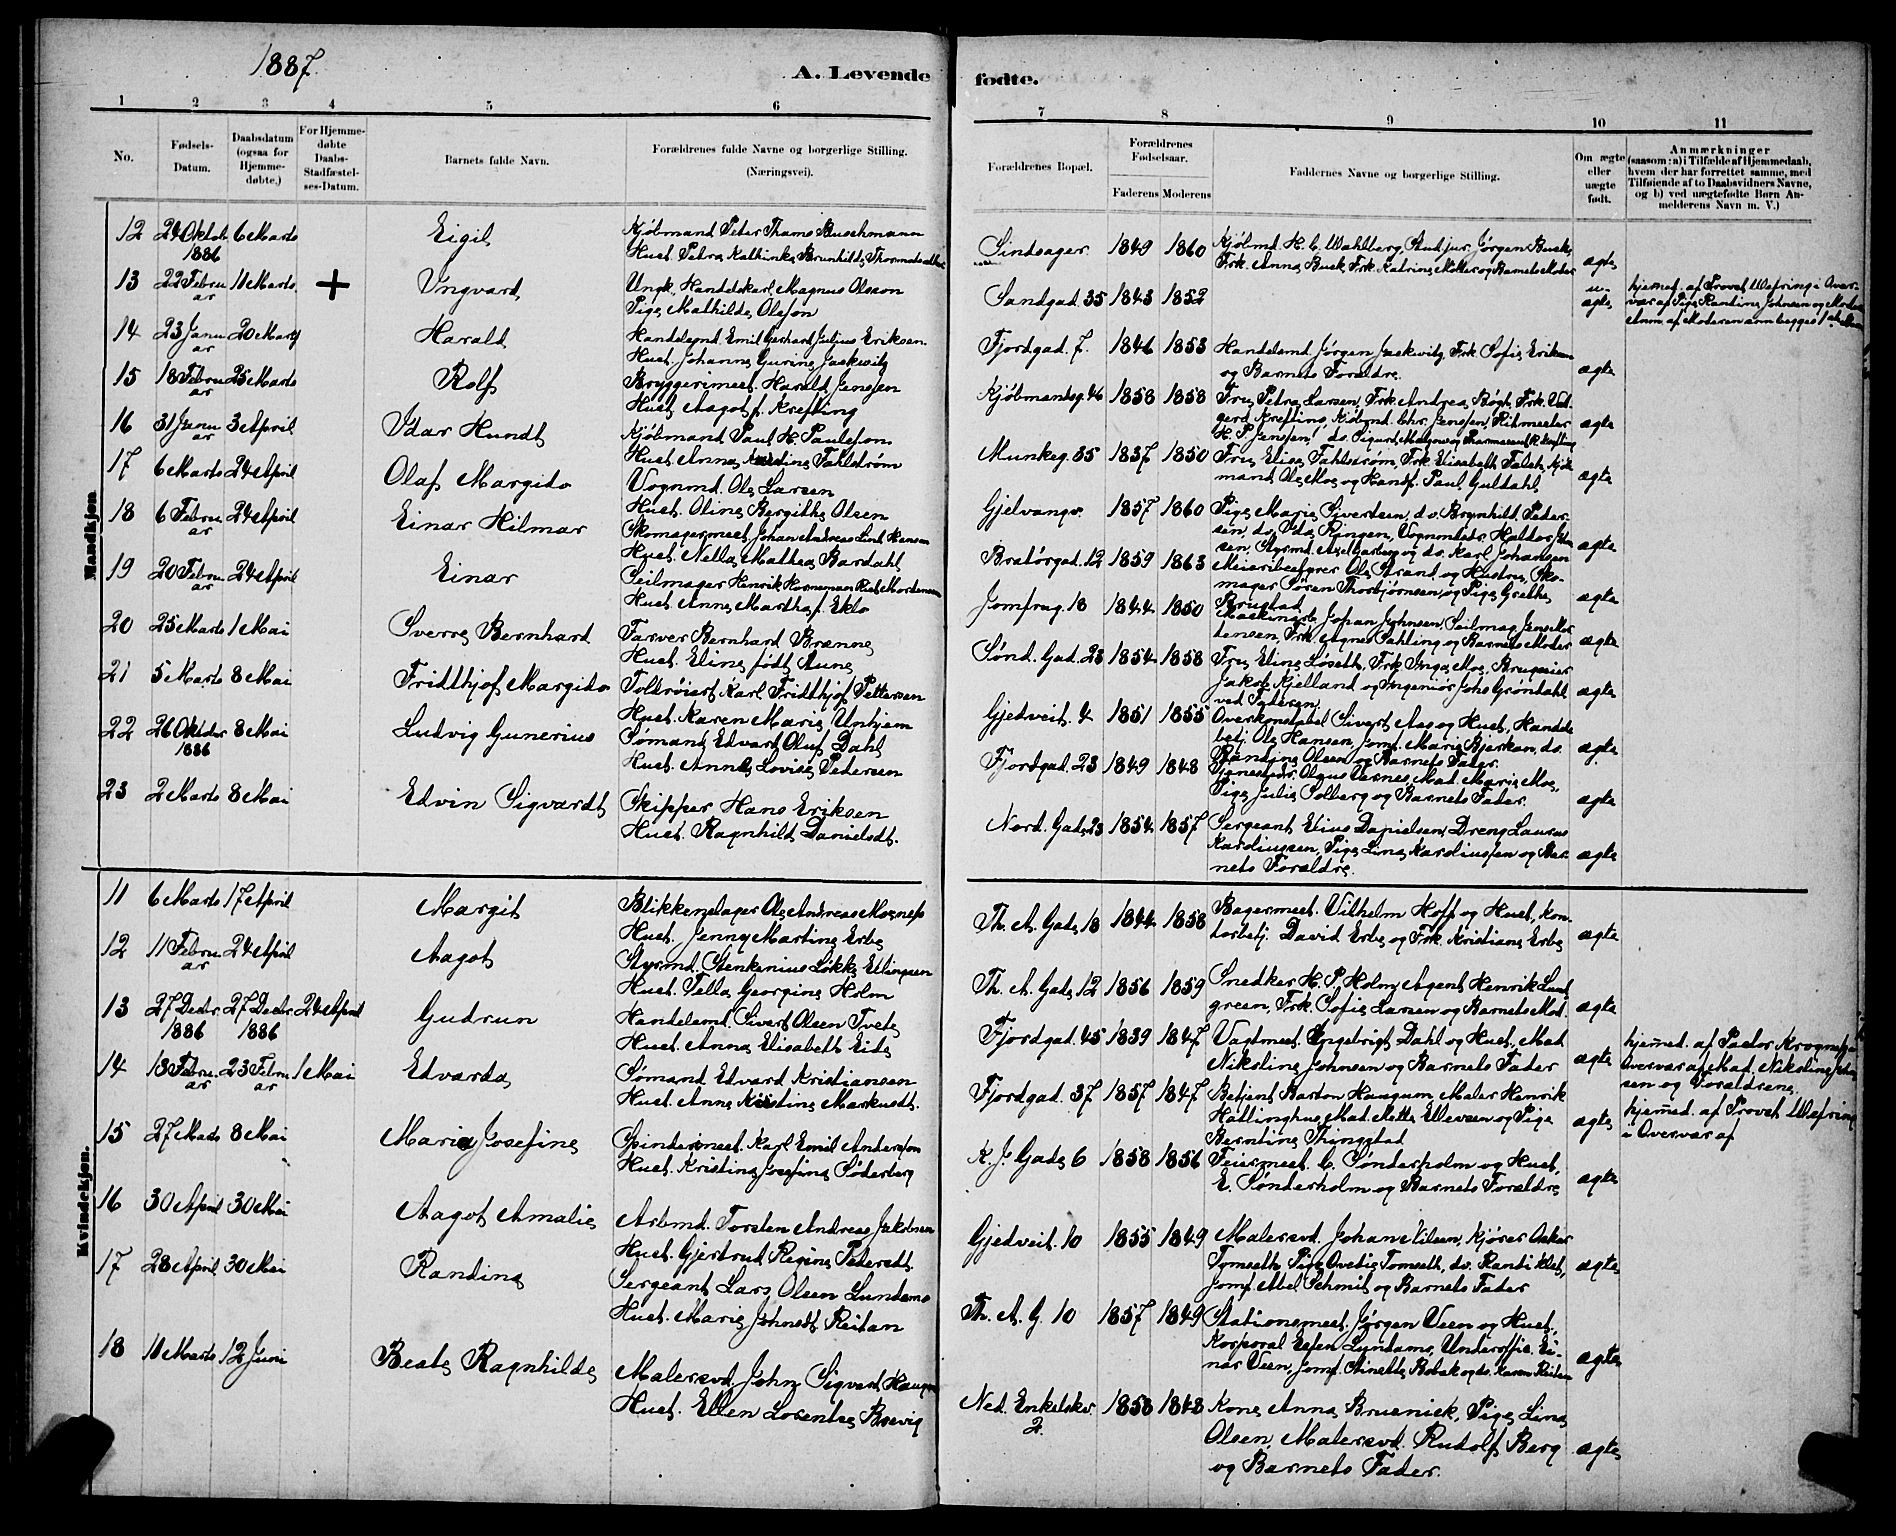 1887.
A. Levende
1 2 3 4 5 6
No.
Fødsels-
Datum.
Daabsdatum
(ogsaa for
Hjemme-
døbte.)
For Hjemme-
døbte
Daabs-
Stadfæstel-
ses-Datum.
Barnets fulde Navn.
Forældrenes fulde Navne og borgerlige Stilling.
(Næringsvei).
Mandkjøn
12 24 Oktob 6 Marts Eigil Kjøbmand Peter Thams Buschmann
1886 Hust. Petra Kathinka Brunhilde
13 22 Febru 11 Marts + Yngvard Ungk. Handelskarl Magnus Olsson
ar Pige Mathilde Olsson
14 23 Janu 20 Marts Harald Handelsmd Emil Gerhard Juljus Eriksen
ar Hust. Johanne Gurine
15 18 Febru 25 Marts Rolf Bryggerimest. Harald Jenssen
ar Hust. Aagot f. Krefting
16 31 Janu 3 April Idar Hundt Kjøbmand Paul H. Paulsson
ar Hust. Anna Fahlstrøm
17 6 Marts 24 April Olaf Margido Vognmd. Ole Larsen
Hust. Oline Bergitte Olsen
18 6 Febru 24 April Einar Hilmar Skomagermest. Johan Andreas Lind Hansen
ar Hust. Nella Mathea Bardahl
19 20 Febru 24 April Einar Seilmager Henrik Horneman Mortensen
ar Hust. Anna Martha f. Eklo
20 25 Marts 1 Mai Sverre Bernhard Farver Bernhard Brænne
Hust. Eline født Aune
21 5 Marts 8 Mai Fridthjof Margido Toldrøiert Karl Fridthjof Pettersen
Hust. Karen Marie Unhjem
22 26 Oktober 8 Mai Ludvig Gunerius Sømand Edvart Oluf Dahl
1886 Hust. Anne Lovise Pedersen
23 2 Marts 8 Mai Edvin Sigvardt Skipper Hans Eriksen
Hust. Ragnhild Danielsdt.
Kvindekjøn.
11 6 Marts 17 April Margit Blikkenslager Ole Andreas Moxness
Hust. Jenny Martine Erbe
12 11 Febru 24 April Aagot Styrmd. Stenkenius Løkke Ellingsen
ar Hust. Tella Georgine Holm
13 27 Decbr 27 Decbr 24 April Gudrun Handelsmd. Sivert Olsen Tvete
1886 1886 Hust. Anna Elisabeth Eide
14 13 Febru 23 Febru 1 Mai Edvarda Sømand Edvard Kristiansen
ar ar Hust. Anne Kristine Markusdt.
15 27 Marts 8 Mai Maria Josefine Spindermest. Karl Emil Andersson
Hust. Kristina Josefina Søderberg
16 30 April 30 Mai Aagot Amalie Arbmd. Torsten Andreas Jakobsen
Hust. Gjertrud Regine Pedersdt.
17 28 April 30 Mai Randine Sergeant Lars Olsen Lundemo
Hust. Marie Johnsdt Reitan
18 11 Marts 12 Juni Beate Ragnhilde Malersvd. John Sigvard Haugen
Hust. Ellen Lorentse Brevig
fødte.
7 8 9 10 11
Forældrenes Bopæl.
Forældrenes
Fødselsaar.
Faderens Moderens
Faddernes Navne og borgerlige Stilling.
Om ægte
eller
uægte
født.
Anmærkninger
(saasom: a) i Tilfælde af Hjemmedaab,
hvem der har forrettet samme, med
Tilføiende af to Daabsvidners Navne,
og b) ved uægtefødte Børn An-
melderens Navn m. V.)
Sindsager 1849 1860 Kjøbmd. H. C. Wahlberg, Stud. jur. Jørgen Buck,
Frk. Anna Buck, Frk. Katrine Møller og Barnets Moder ægte
Sandgad. 35 1843 1852 u-
ægte hjemmed. af Provst Ulefring i Over-
vær af Pige Randine Johnsen og Moderen
Fjordgad. 7. 1846 1853 Handelsmd. Jørgen Jaekwitz, Frk. Sofie Eriksen
og Barnets Forældre. ægte
Kjøbmandsg. 46 1858 1858 Fru Petra Larsen, Frk. Andrea Bøgh, Frk. Val-
gerd Krefting, Kjøbmd. Chr. Jenssen, Ritmester
H. P. Jenssen, do. Sigurd ægte
Munkeg. 35 1837 1850 Fru Elise Fahlstrøm, Frk. Elisabeth Falck, Kjøb-
mand Ole Moe og Handf. Paul Guldahl ægte
Gjelvangv. 1857 1860 Pige Marie Sivertsen, do. Brynhild Peder-
sen, do. Ida Ringen, Vognmd. Haldor
sen, Styrmd. Axel og do. Karl Johansen ægte
Bratørgad. 12 1859 1863 Meieribestyrer Ole Strand og Hustru, Sko-
mager Søren Thorbjørnsen og Pige Grethe
Brustad ægte
Jomfrug. 18 1844 1850 Maskinist Johan Johnsen, Seilmag. Jens Mor-
tensen, Frk. Agnes Sahling og Barnets Moder ægte
Sønd. Gad. 23 1854 1858 Fru Eline Løseth, Frk. Inga Moe, Brugseier
Jakob Kjelland og Ingeniør Johs Grøndahl
ved Faderen. ægte
Gjedveit. 4 1851 1855 Overkonstabel Sivert Aas og Hust., Handels-
betj. Ole Hansen, Jomf. Marie Bjerkan, do.
Randine Olsen og Barnets Fader. ægte
Fjordgad. 23 1849 1848 Tjenestedr. Olaus Vesnes, Mad. Marie Moe,
Pige Julie Solberg og Barnets Fader. ægte
Nord. Gade 23 1854 1857 Sergeant Elius Danielsen, Dreng Laurus
Karoliussen, Pige Lina Karoliussen og Bar-
nets Forældre. ægte
Th. A. Gade 18 1844 1858 Bagermest. Vilhelm Hoff og Hust., Kon-
torbetj. David Erbe og Frk. Kristiane Erbe ægte
Th. A. Gade 12 1856 1859 Snedker H. P. Holm, Agent Henrik Lund-
green, Frk. Sofie Larsen og Barnets Mod. ægte
Fjordgad. 45 1839 1847 Vagtmest. Engebrigt Dahl og Hust., Mad.
Nikoline Johnsen og Barnets Fader ægte hjemmed. af Pastor Krogness i
Overvær af Mad. Nikoline John-
sen og Forældrene
Fjordgad. 37 1857 1847 Betjent Barton Haugum, Maler Henrik
Hallinghus, Mad. Mette Ellevsen og Pige
Berntine Thingstad ægte hjemmed. af Provst Ulefring
i Overvær af
K. J. Gade 6 1858 1856 Feiermest. C. Sønderholm og Hust.
E. Sønderholm og Barnets Forældre ægte
Gjedveit. 10 1855 1849 Malersvd. Johan Nilsen, Kjører Oskar
Tomseth, Pige Ovedie Tomseth, do. Randi Klet,
Jomf. Abel Schmit og Barnets Fader ægte
Th. A. G. 10 1857 1849 Stationsmest. Jørgen Veen og Hust.,
Korporal Esten Lundamo, Underoffic. Ei-
nar Veen, Jomf. og do. Karen Reitan ægte
Ned. Enkelskv. 1858 1848 Kone Anna Brusnick, Pige Lina
2. Olsen, Malersvd. Rudolf Berg
og Barnets Fader. ægte